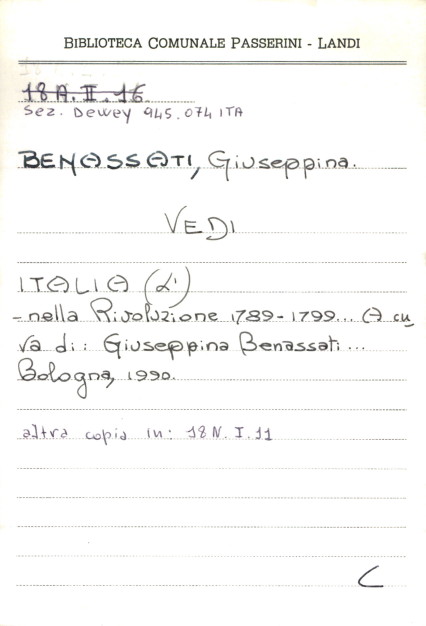 BIBLIOTECA COMUNALE PASSERINI - LANDI
18A.II.16
Sez. Dewey 945.074 ITA
BENASSATI, Giuseppina.
VEDI
ITALIA (L')
- nella Rivoluzione 1789-1799... A cu
ra di: Giuseppina Benassati...
Bologna, 1990.
altra copia in: 18 N. I. 11
C